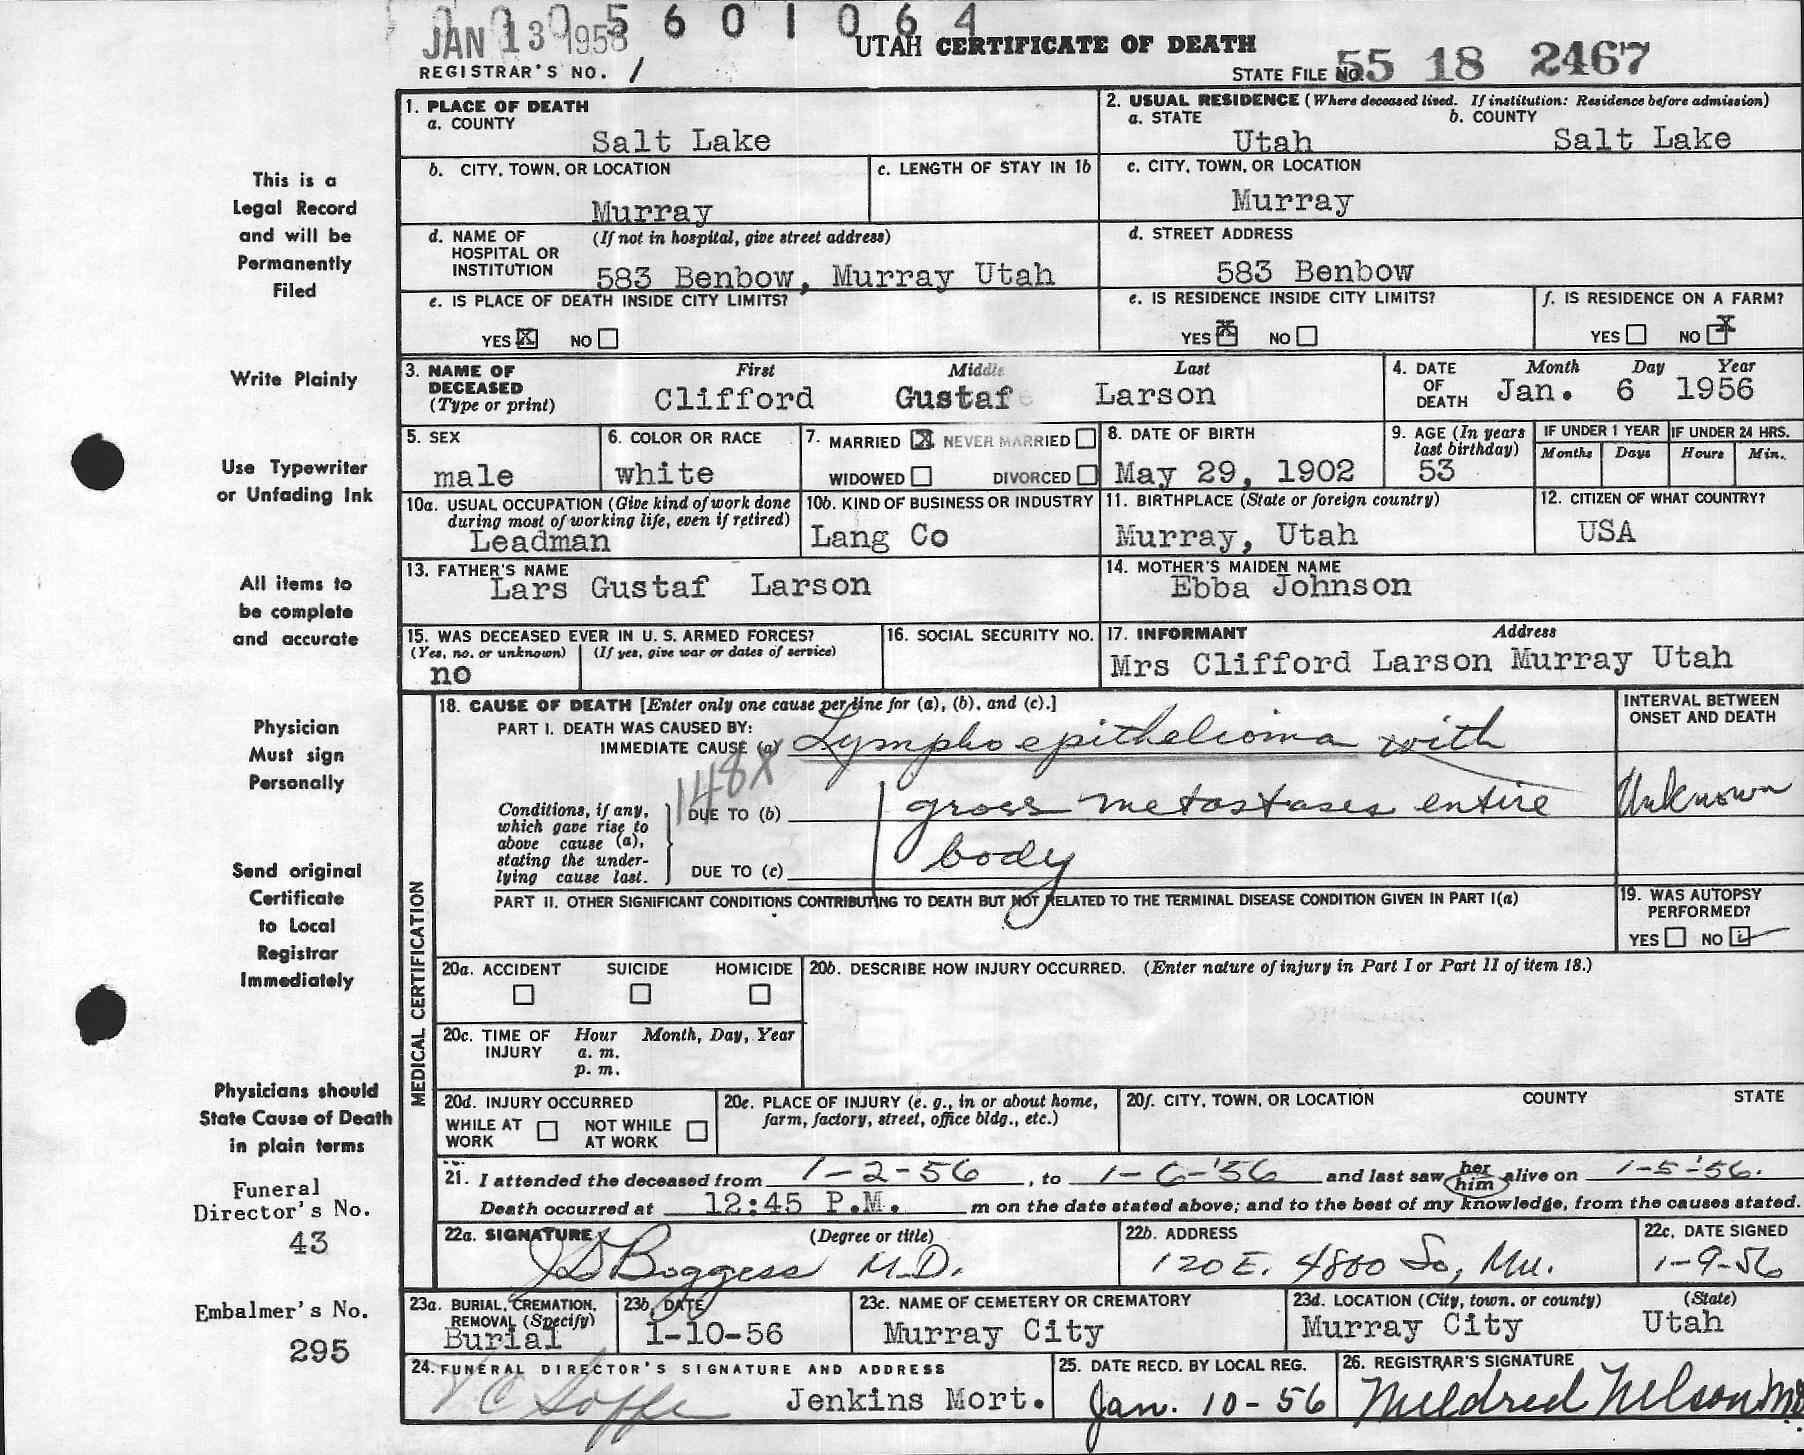 0 0 0 5 6 0 1 0 6 4
JAN 13 1956
UTAH CERTIFICATE OF DEATH
REGISTRAR'S NO. 1
STATE FILE NO. 55 18 2467
1. PLACE OF DEATH
a. COUNTY
Salt Lake
2. USUAL RESIDENCE (Where deceased lived. If institution: Residence before admission)
a. STATE b. COUNTY
Utah Salt Lake
b. CITY, TOWN, OR LOCATION
Murray
c. LENGTH OF STAY IN 1b
c. CITY, TOWN, OR LOCATION
Murray
d. NAME OF HOSPITAL OR INSTITUTION
(If not in hospital, give street address)
583 Benbow, Murray Utah
d. STREET ADDRESS
583 Benbow
e. IS PLACE OF DEATH INSIDE CITY LIMITS?
YES X NO
e. IS RESIDENCE INSIDE CITY LIMITS?
YES X NO
f. IS RESIDENCE ON A FARM?
YES NO X
3. NAME OF DECEASED
(Type or print)
First Middle Last
Clifford Gustaf Larson
4. DATE OF DEATH
Month Day Year
Jan. 6 1956
5. SEX
male
6. COLOR OR RACE
white
7. MARRIED X NEVER MARRIED
WIDOWED DIVORCED
8. DATE OF BIRTH
May 29, 1902
9. AGE (In years last birthday)
53
IF UNDER 1 YEAR
Months Days
IF UNDER 24 HRS.
Hours Min.
10a. USUAL OCCUPATION (Give kind of work done during most of working life, even if retired)
Leadman
10b. KIND OF BUSINESS OR INDUSTRY
Lang Co
11. BIRTHPLACE (State or foreign country)
Murray, Utah
12. CITIZEN OF WHAT COUNTRY?
USA
13. FATHER'S NAME
Lars Gustaf Larson
14. MOTHER'S MAIDEN NAME
Ebba Johnson
15. WAS DECEASED EVER IN U. S. ARMED FORCES?
(Yes, no. or unknown) (If yes, give war or dates of service)
no
16. SOCIAL SECURITY NO.
17. INFORMANT Address
Mrs Clifford Larson Murray Utah
18. CAUSE OF DEATH [Enter only one cause per line for (a), (b), and (c).]
PART I. DEATH WAS CAUSED BY:
IMMEDIATE CAUSE (a) Lymphoepithelioma with
148X
Conditions, if any, which gave rise to above cause (a), stating the underlying cause last.
DUE TO (b) gross metastases entire
DUE TO (c) body
INTERVAL BETWEEN ONSET AND DEATH
Unknown
PART II. OTHER SIGNIFICANT CONDITIONS CONTRIBUTING TO DEATH BUT NOT RELATED TO THE TERMINAL DISEASE CONDITION GIVEN IN PART I(a)
19. WAS AUTOPSY PERFORMED?
YES NO
MEDICAL CERTIFICATION
20a. ACCIDENT SUICIDE HOMICIDE
20b. DESCRIBE HOW INJURY OCCURRED. (Enter nature of injury in Part I or Part II of item 18.)
20c. TIME OF INJURY
Hour Month, Day, Year
a. m.
p. m.
20d. INJURY OCCURRED
WHILE AT WORK NOT WHILE AT WORK
20e. PLACE OF INJURY (e. g., in or about home, farm, factory, street, office bldg., etc.)
20f. CITY, TOWN, OR LOCATION COUNTY STATE
21. I attended the deceased from 1-2-56, to 1-6-'56 and last saw her him alive on 1-5-'56.
Death occurred at 12:45 P.M. m on the date stated above; and to the best of my knowledge, from the causes stated.
22a. SIGNATURE (Degree or title)
Boggess M.D.
22b. ADDRESS
120 E. 4800 So, Mu.
22c. DATE SIGNED
1-9-56
23a. BURIAL, CREMATION, REMOVAL (Specify)
Burial
23b. DATE
1-10-56
23c. NAME OF CEMETERY OR CREMATORY
Murray City
23d. LOCATION (City, town. or county) (State)
Murray City Utah
24. FUNERAL DIRECTOR'S SIGNATURE AND ADDRESS
Soffe Jenkins Mort.
25. DATE RECD. BY LOCAL REG.
Jan. 10-56
26. REGISTRAR'S SIGNATURE
Mildred Nelson
This is a
Legal Record
and will be
Permanently
Filed
Write Plainly
Use Typewriter
or Unfading Ink
All items to
be complete
and accurate
Physician
Must sign
Personally
Send original
Certificate
to Local
Registrar
Immediately
Physicians should
State Cause of Death
in plain terms
Funeral
Director's No.
43
Embalmer's No.
295